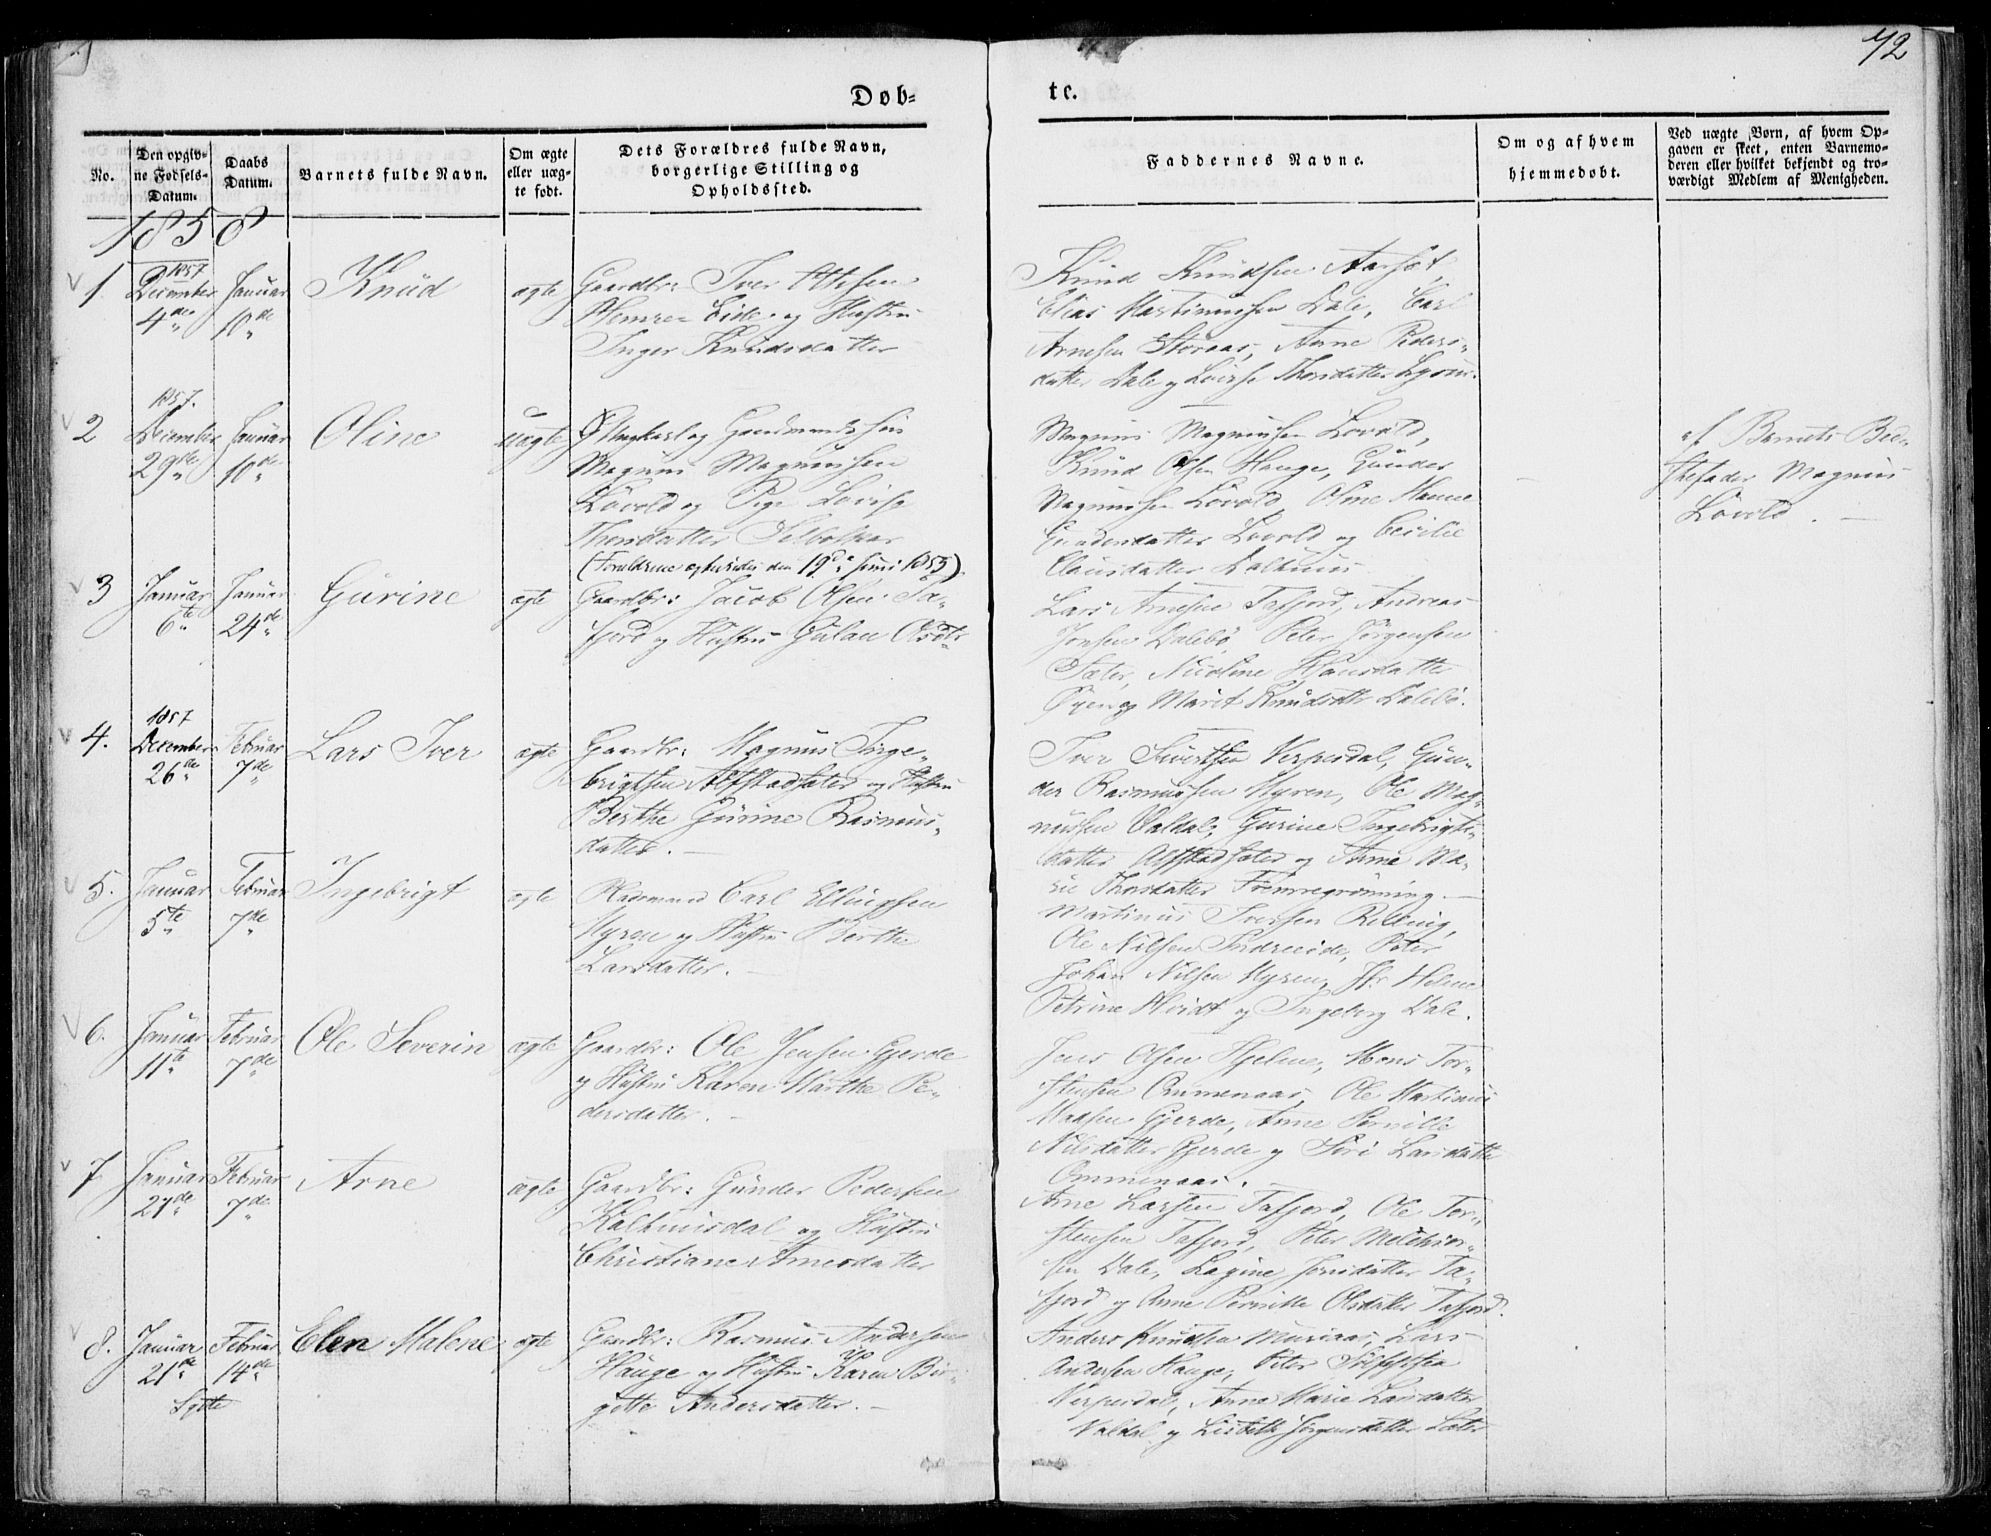 72
Døb=
te.
No.
Den opgiv=
ne Fødsels=
Datum.
Daabs
Datum.
Barnets fulde Navn.
Om ægte
eller uæg=
te født.
Dets Forældres fulde Navn,
borgerlige Stilling og
Opholdssted.
Faddernes Navne.
Om og af hvem
hjemmedøbt.
Ved uægte Børn, af hvem Op=
gaven er skeet, enten Barnemo=
deren eller hvilket bekjendt og tro=
værdigt Medlem af Menigheden.
1858
1
1857
December
4de
Januar
10de
Knud
ægte
Gaardbr: Iver
Eide og Hustru
Inger Knudsdatter
Knud Knudsen Aarset,
Elias Martinussen Dale, Carl
Arnesen Storaas, Anne Peders=
datter Dale og Lovise Thorsdatter
2
1857.
December
29de
Januar
10de
Oline
uægte
Ungkarl og Gaardmandssøn
Magnus Magnussen
Løvold og Pige Lovise
Thorsdatter Selboskar
(Forældrene den 19de Juni 1853)
Magnus Magnussen Løvold,
Knud Olsen Hauge, Gunder
Magnussen Løvold, Oline Hanne
Gundersdatter Løvold og Cecilie
Clausdatter
af Barnets Bed=
stefader Magnus
Løvold. —
3
Januar
6te
Januar
24de
Gurine
ægte
Gaardbr: Jacob Olsen Ta=
fjord og Hustru Gulau Olsdtr
Lars Arnesen Tafjord, Andreas
Jonsen Dalebø, Peter Jørgensen
Sæter, Nicoline Hansdatter
Øyen og Marit Knudsdtr Dalebø.
4.
1857
December
26de
Februar
7de
Lars Iver
ægte
Gaardbr: Magnus Inge=
brigtsen Alfstadsæter og Hustru
Berthe Gurine Rasmus=
datter. —
Iver Sivertsen Verpesdal, Gun=
der Rasmussen Myren, Ole Mag=
nussen Valdal, Gurine Ingebrigts=
datter Alfstadsæter og Anne Ma=
rie Thorsdatter Fremregrønning. —
5.
Januar
5te
Februar
7de
Ingebrigt
ægte
Pladsmand Carl Ellingsen
Myren og Hustru Berthe
Larsdatter. —
Martinus Iversen Relling,
Ole Nilsen Indreeide, Peter
Johan Nilsen Myren, Jfr Helene
Petrine Hvidt og Ingeborg Dale.
6.
Januar
11te
Februar
7de
Ole Severin
ægte
Gaardbr: Ole Jensen Gjerde
og Hustru Karen Marthe Pe=
dersdatter. —
Jens Olsen Hjelme, Mons Tor=
stensen Ommenaas, Ole Martinus
Madsen Gjerde, Anne Pernille
Nilsdatter Gjerde og Siri Larsdatter
Ommenaas. —
7
Januar
27de
Februar
7de
Arne
ægte
Gaardbr: Gunder Pedersen
Kaldhusdal og Hustru
Christiane Arnesdatter
Arne Larsen Tafjord, Ole Tor=
stensen Tafjord, Peter Melchior=
sen Dale, Ragine Jonsdatter Ta=
fjord og Anne Pernille Olsdatter Tafjord.
8.
Januar
21de
Sylte
Februar
14de
Elen Malene
ægte
Gaardbr: Rasmus Andersen
Hauge og Hustru Karen Bir=
gitte Andersdatter. —
Anders Knudsen Muriaas, Lars
Andersen Hauge, Peter
Verpesdal, Anne Marie Larsdatter
Valdal og Lisbeth Jørgensdatter Sæter